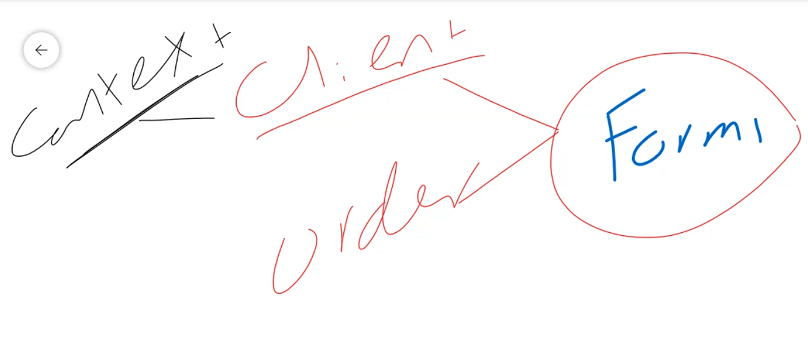 Context
Client
Order
Form1